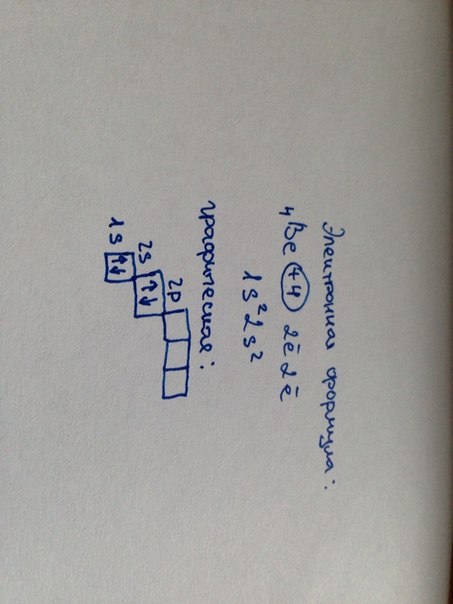 Электронная формула:
₄Be (+4) 2ē 2ē
1s² 2s²
графическая:
2p
2s ↑↓
1s ↑↓